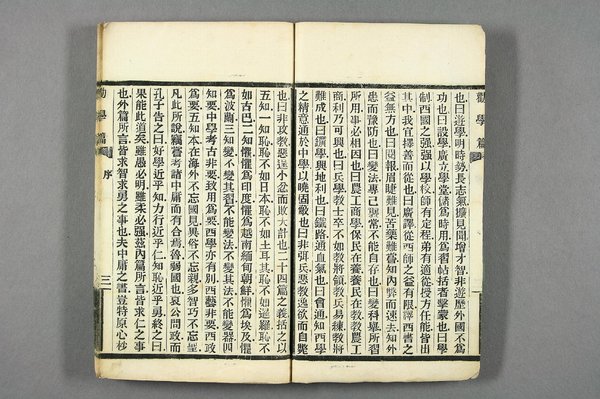 勸學篇
也曰遊學明時勢長志氣擴見聞增才智非遊歷外國不爲
功也曰設學廣立學堂儲爲時用爲習帖括者擊蒙也曰學
制西國之强强以學校師有定程弟有適從授方任能皆出
其中我宜擇善而從也曰廣譯從西師之益有限譯西書之
益無方也曰閱報眉睫難見苦藥難嘗知內弊而速去知外
患而豫防也曰變法專己襲常不能自存也曰變科舉所習
所用事必相因也曰農工商學保民在養養民在教教農工
商利乃可興也曰兵學教士卒不如教將領教兵易練教將
難成也曰鑛學興地利也曰鐵路通血氣也曰會通知西學
之精意通於中學以曉固蔽也曰非弭兵惡教逸欲而自斃
也曰非攻教惡逞小忿而敗大計也二十四篇之義括之以
五知一知恥恥不如日本恥不如土耳其恥不如暹羅恥不
如古巴二知懼懼爲印度懼爲越南緬甸朝鮮懼爲埃及懼
爲波蘭三知變不變其習不能變法不變其法不能變器四
知要中學考古非要致用爲要西學亦有別西藝非要西政
爲要五知本在海外不忘國見異俗不忘親多智巧不忘聖
凡此所說竊嘗考諸中庸而有合焉魯弱國也哀公問政而
孔子告之曰好學近乎知力行近乎仁知恥近乎勇終之曰
果能此道矣雖愚必明雖柔必强茲內篇所言皆求仁之事
也外篇所言皆求智求勇之事也夫中庸之書豈特原心秒
勸學篇 序 三